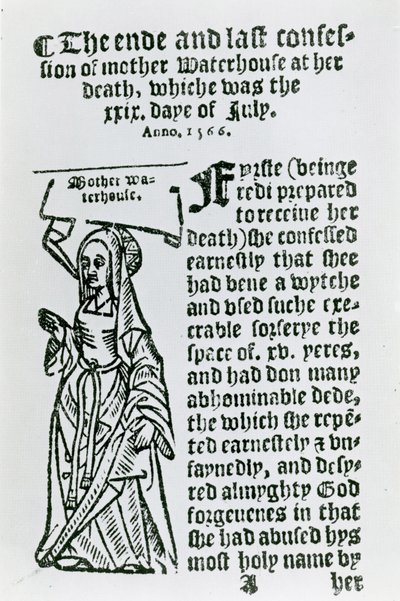 ¶ The ende and last confes-
sion of mother Waterhouse at her
death, whiche was the
xxix. daye of July.
Anno. 1566.
Mother wa-
terhouse.
Fyrste (beinge
redi prepared
to receiue her
death) she confessed
earnestly that shee
had bene a wytche
and vsed suche exe-
crable sorserye the
space of. xv. yeres,
and had don many
abhominable dede,
the which she repẽ-
ted earnestely & vn-
faynedly, and desy-
red almyghty God
forgeuenes in that
she had abused hys
most holy name by
A her